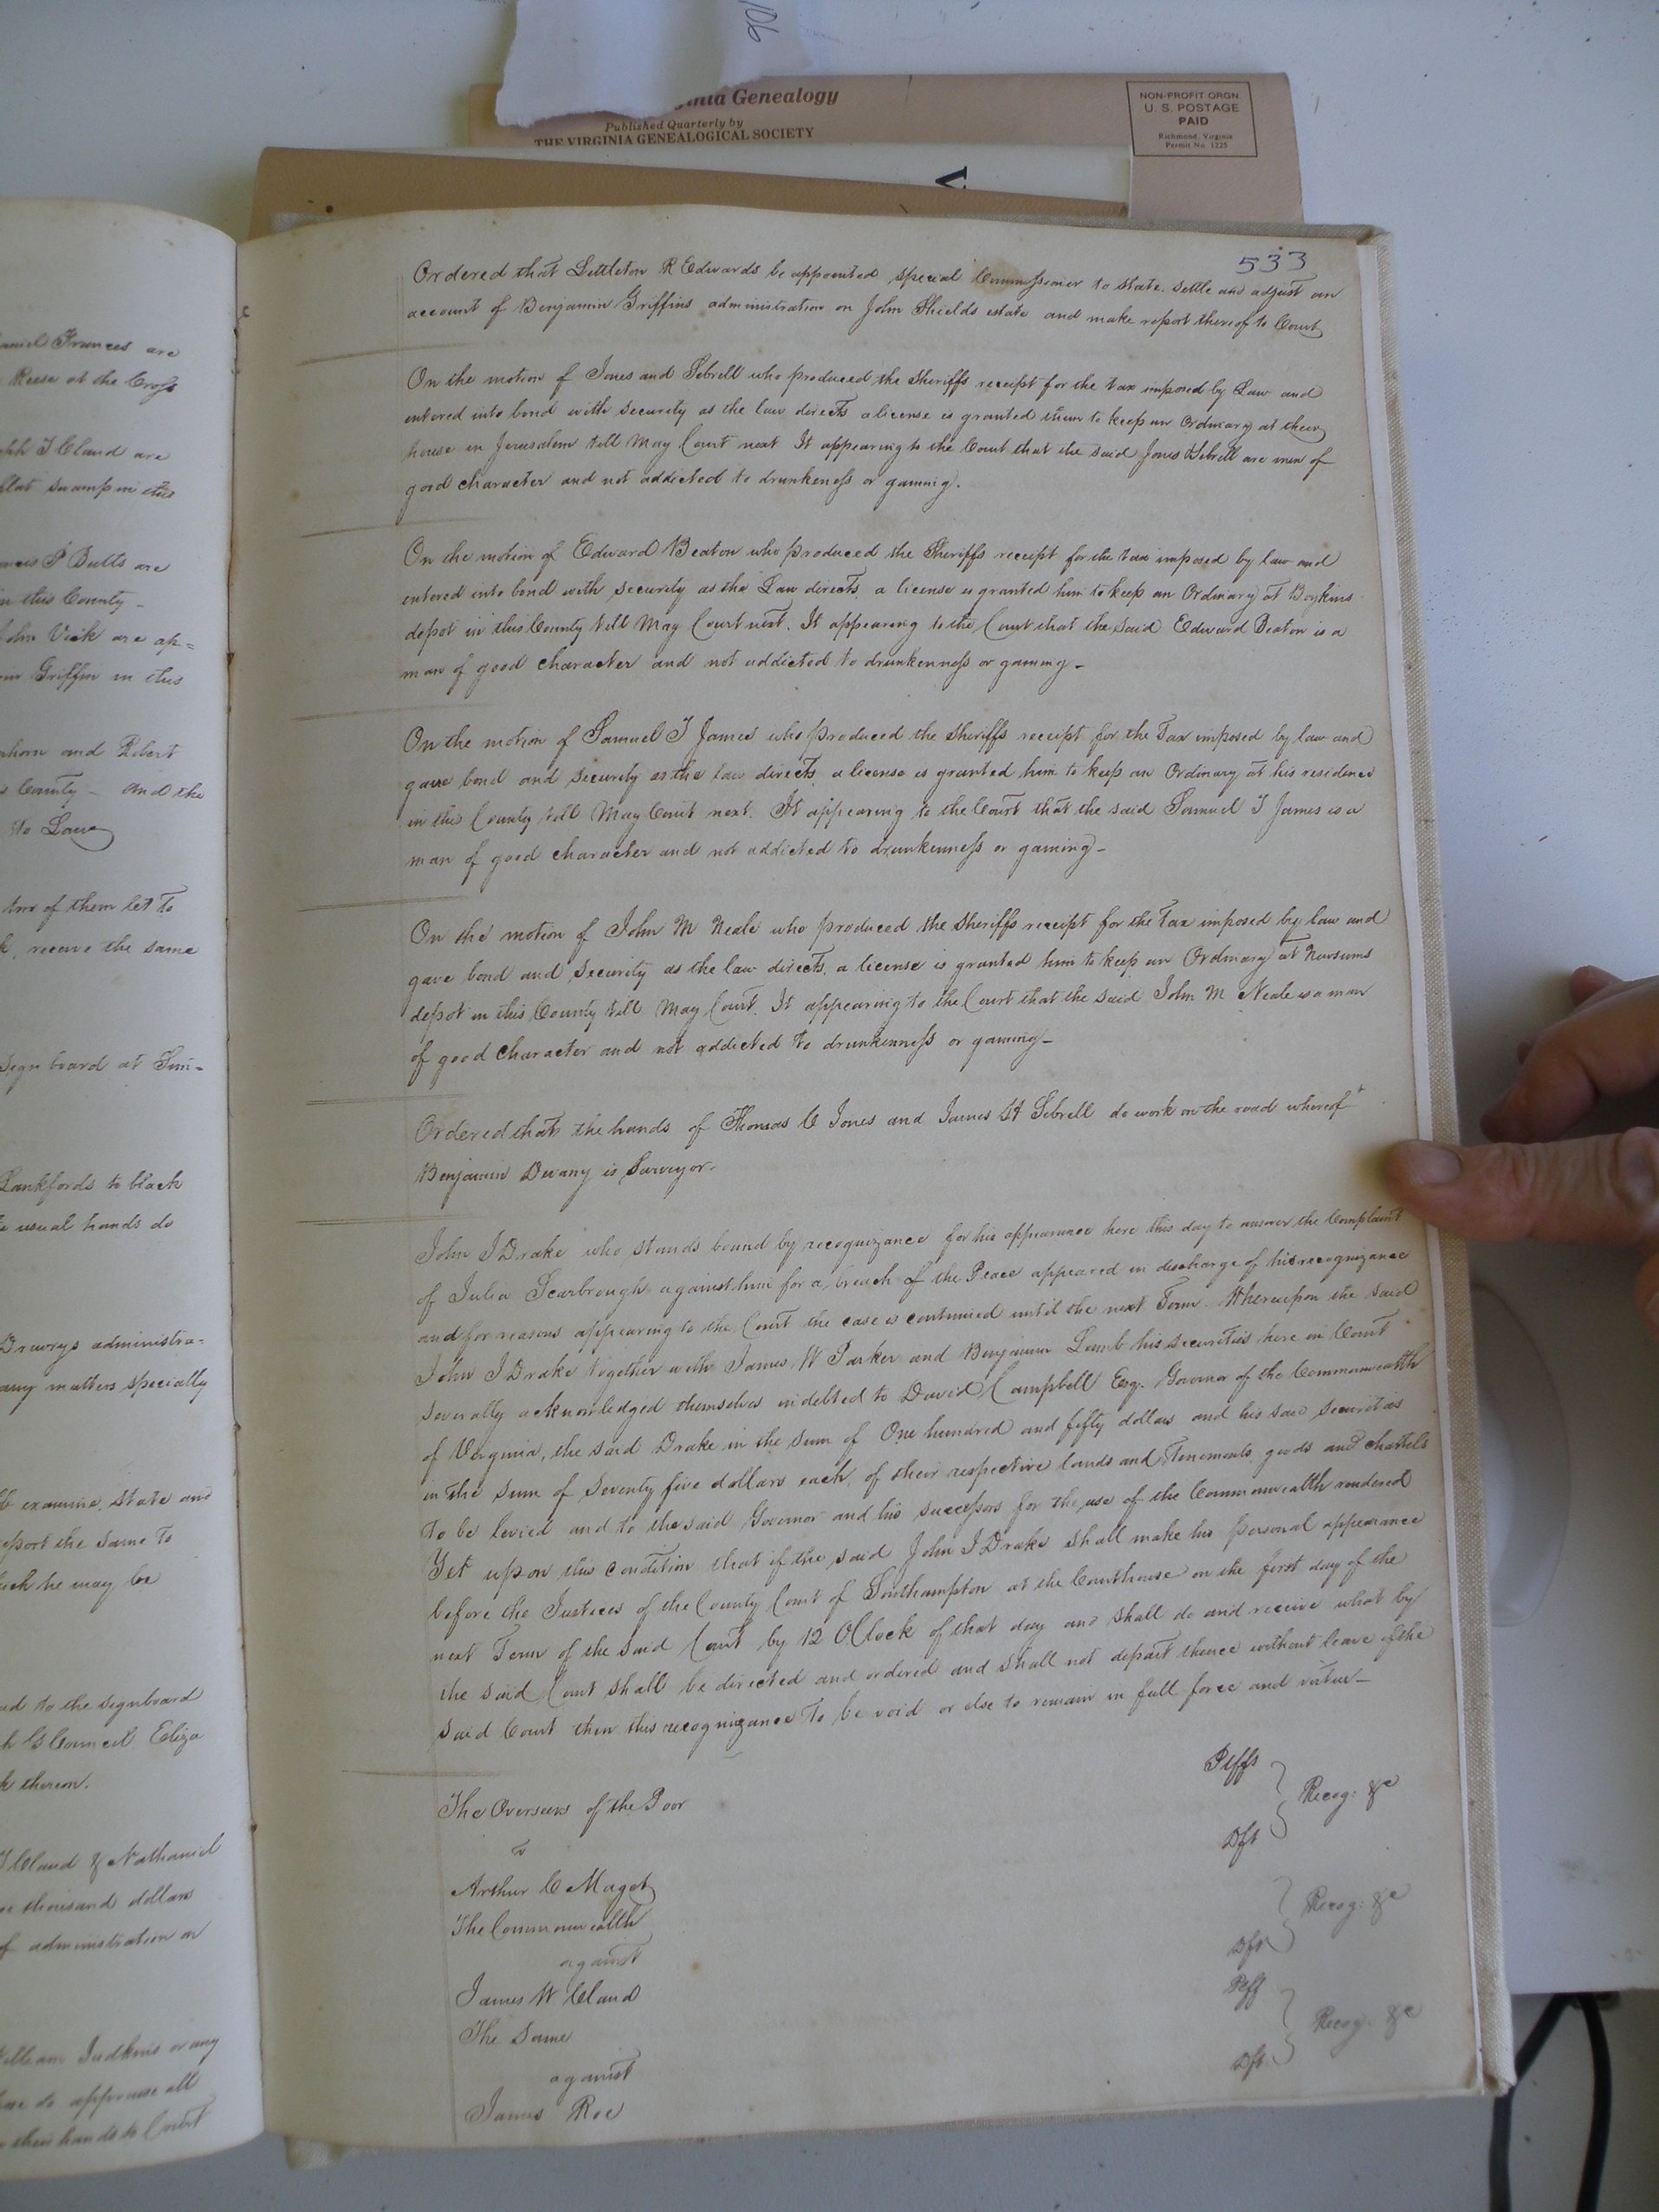 106
Virginia Genealogy
Published Quarterly by
THE VIRGINIA GENEALOGICAL SOCIETY
NON-PROFIT ORGN.
U. S. POSTAGE
PAID
Richmond, Virginia
Permit No. 1225
V
aniel Frances are
Reese at the Cross
ph T Cland are
flat swamp in this
P Butts are
in this County -
John Vick are ap=
Griffin in this
nhorn and Robert
County - and the
to Law
two of them let to
receive the same
sign board at Sim=
Lankfords to black
usual hands do
Drewrys administra-
any matters specially
examine, state and
report the same to
he may be
to the signboard
Council Eliza
thereon.
T Cland & Nathaniel
thousand dollars
of administration on
William Judkins or any
do appraise all
their hands to Court
533
Ordered that Littleton R Edwards be appointed special Commissioner to state, settle and adjust an
account of Benjamin Griffins administration on John Shields estate and make report thereof to Court
On the motion of Jones and Sebrell who produced the Sheriffs receipt for the tax imposed by Law and
entered into bond with security as the law directs a license is granted them to keep an Ordinary at their
house in Jerusalem till May Court next It appearing to the Court that the said Jones & Sebrell are men of
good character and not addicted to drunkeness or gaming.
On the motion of Edward Beaton who produced the Sheriffs receipt for the tax imposed by law and
entered into bond with security as the Law directs, a license is granted him to keep an Ordinary at Boykins
depot in this County till May Court next. It appearing to the Court that the said Edward Beaton is a
man of good character and not addicted to drunkenness or gaming -
On the motion of Samuel T James who produced the Sheriffs receipt for the Tax imposed by law and
gave bond and security as the law directs, a license is granted him to keep an Ordinary at his residence
in this County till May Court next. It appearing to the Court that the said Samuel T James is a
man of good character and not addicted to drunkenness or gaming -
On the motion of John M Neale who produced the Sheriffs receipt for the Tax imposed by law and
gave bond and security as the law directs, a license is granted him to keep an Ordinary at Newsums
depot in this County till May Court. It appearing to the Court that the said John M Neale is a man
of good character and not addicted to drunkenness or gaming -
Ordered that the hands of Thomas C Jones and James H Sebrell do work on the road whereof
Benjamin Devany is Surveyor.
John J Drake who stands bound by recognizance for his appearance here this day to answer the complaint
of Julia Scarbrough against him for a breach of the Peace appeared in discharge of his recognizance
and for reasons appearing to the Court the case is continued until the next Term. Whereupon the said
John J Drake together with James W Parker and Benjamin Lamb his securities here in Court
severally acknowledged themselves indebted to David Campbell Esq. Governor of the Commonwealth
of Virginia, the said Drake in the sum of One hundred and fifty dollars and his said securities
in the sum of seventy five dollars each, of their respective lands and Tenements, goods and chattels
to be levied and to the said Governor and his successors for the use of the Commonwealth rendered
Yet upon this condition that if the said John J Drake shall make his personal appearance
before the Justices of the County Court of Southampton at the Courthouse on the first day of the
next Term of the said Court by 12 OClock of that day and shall do and receive what by
the said Court shall be directed and ordered and shall not depart thence without leave of the
said Court then this recognizance to be void or else to remain in full force and virtue -
The Overseers of the Poor Plffs
v Recog: &c
Arthur C Maget Dft
The Commonwealth
against Recog: &c
James W Cland Dft
The Same Plff
against Recog: &c
James Roe Dft